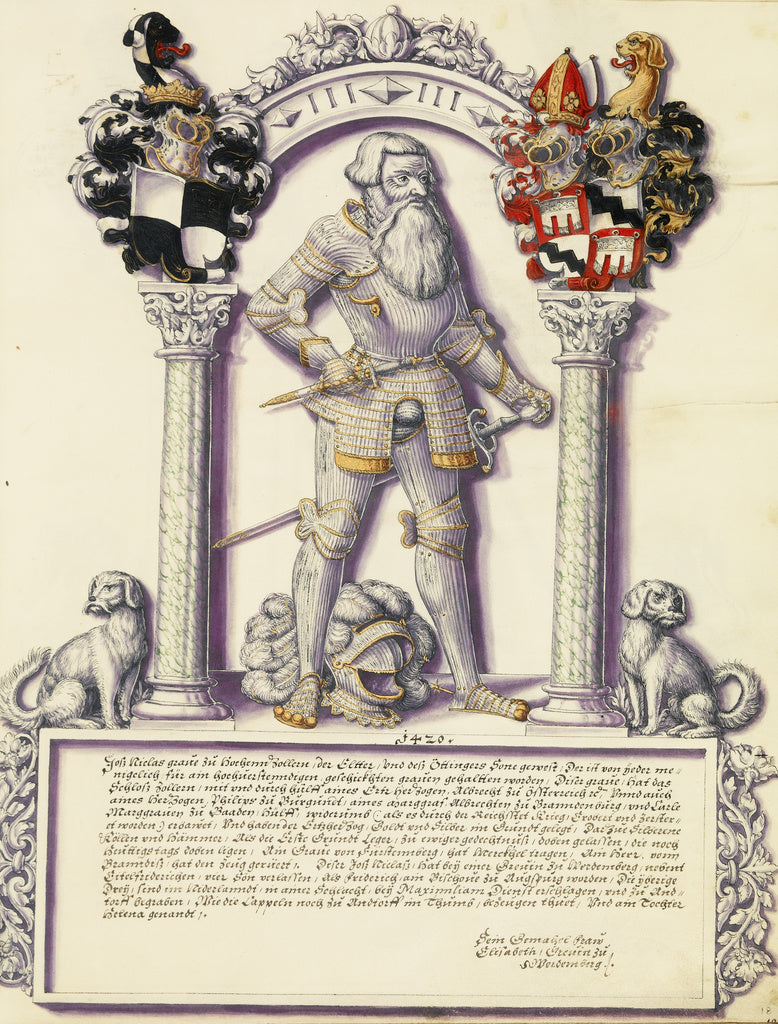 1420.
Joß Niclas graue zu Hochenn Zollern, der Elter, Vnd deß Öttingers Sone gewest, Der ist von yeder me=
nigelich für ain hochuerstenndigen geschickhten grauen gehaltten worden, Diser graue, hat das
Schloß Zollern, mit vnd durch hülff aines Ertzherzogen, Albrecht zu Össterreich &c. Vnnd auch
aines Hertzogen, Philips zu Burgundt, aines Marggraf Albrechten zu Branndenburg, vnd Carle
Marggrauen zu Baaden, Hülff, widerumb (als es durch der Reichstet Krieg, Erobert vnd Zerstör=
et worden) erbawet, Vnd haben der Ertzhertzog, Goldt vnd Silber im Grundt gelegt, Dartzue Silberene
Köllen vnd Hammer, Als die Erste Grundt Leger, zu ewiger gedechtnuß, doben gelassen, die noch
Heutigstags doben ligen, Ain Graue von Fürstemberg, hat Merthel tragen, Ain Herr, vom
Branndiß, hat den Zeug geruert, Diser Joß Niclaß, Hat bey einer Greuin zu Werdemberg, nebent
Eitelfriderichen, vier Sön verlassen, Als Friderich, ain Bischoue zu Augspurg worden, Die yberige
Drey, sind im Niderlanndt, in ainer Schlacht, bey Maximiliani Dienst erschlagen, vnd zu Ann=
torff begraben, Wie die Cappeln noch zu Andorff im Thumb, bezeugen thuet, Vnd ain Tochter
Helena genandt.
Sein Gemahel Fraw
Elisabeth, Greuin zu
Werdemberg.
18